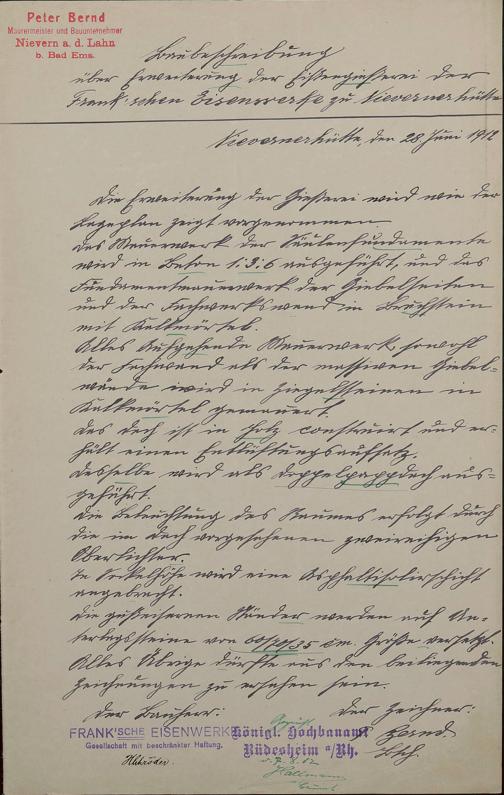 Peter Bernd
Maurermeister und Bauunternehmer
Nievern a. d. Lahn
b. Bad Ems.
Baubeschreibung
über Erweiterung der Eisengiesserei der
Frank'schen Eisenwerke zu Nievernerhütte
Nievernerhütte, den 28 Juni 1912
Die Erweiterung der Giesserei wird wie der
Lageplan zeigt vorgenommen
Das Mauerwerk der Säulenfundamente
wird in Beton 1:3:6 ausgeführt, und das
Fundamentmauerwerk der Giebelseiten
und der Fachwerkswand in Bruchstein
mit Kalkmörtel.
Alles Aufgehende Mauerwerk, sowohl
der Fachwand als der massiven Giebel=
wände wird in Ziegelsteinen in
Kalkmörtel gemauert.
Das Dach ist in Holz construirt und er=
hält einen Entlüftungsaufsatz.
Dasselbe wird als Doppelpappdach aus=
geführt.
Die Beleuchtung des Raumes erfolgt durch
die im Dach vorgesehenen zweireihigen
Oberlichter.
In Sockelhöhe wird eine Asphaltisolirschicht
angebracht.
Die gußeisernen Ständer werden auf Un=
terlagssteine von 60/60/35 cm. Größe versetzt.
Alles Übrige dürfte aus den beiliegenden
Zeichnungen zu ersehen sein.
Der Bauherr:
Der Zeichner:
FRANK'SCHE EISENWERKE
Gesellschaft mit beschränkter Haftung.
Königl. Hochbauamt
Rüdesheim a/Rh.
Geprüft
Bernd